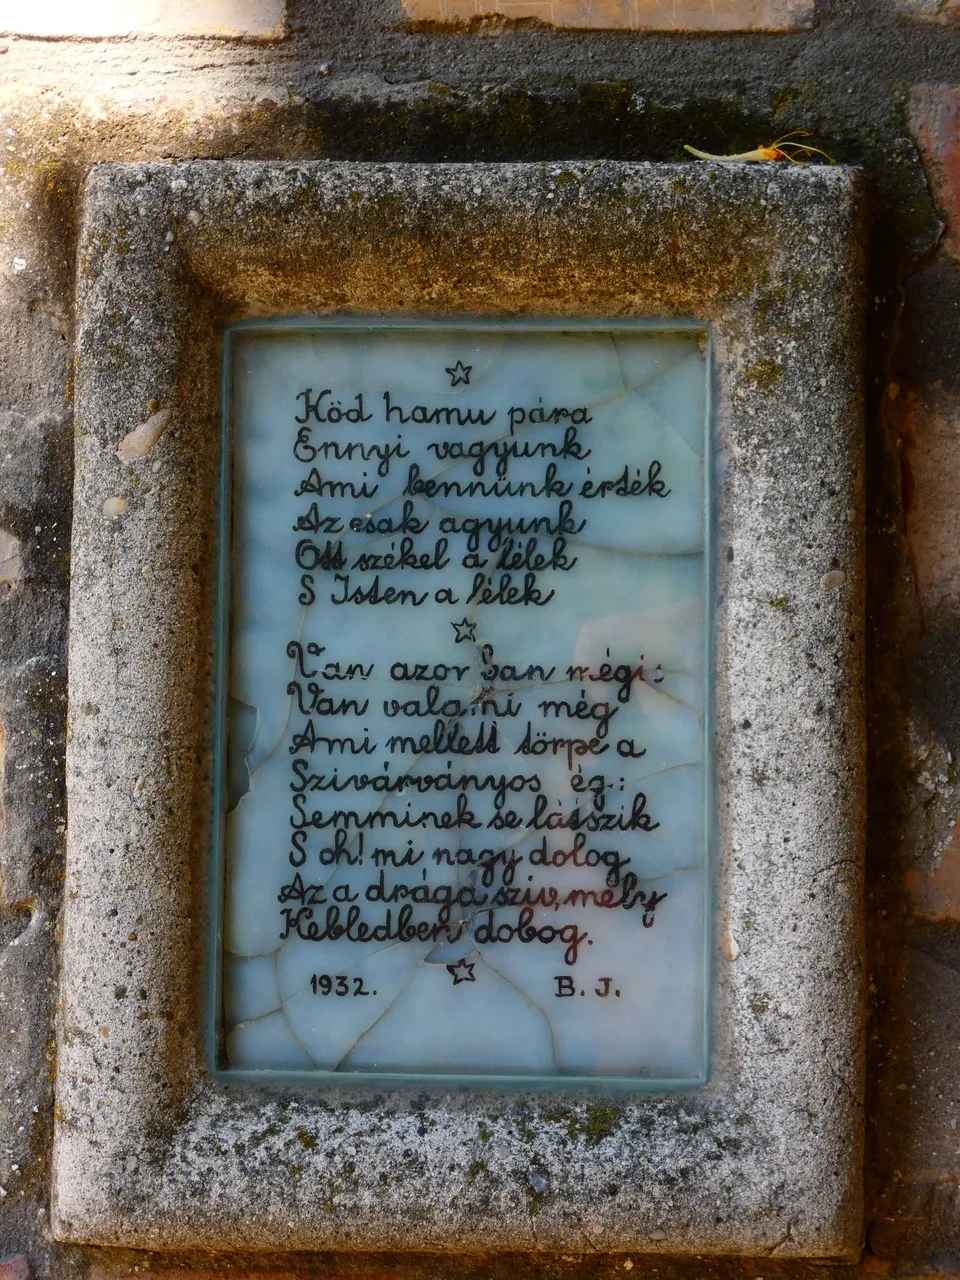 Köd hamu pára
Ennyi vagyunk
Ami bennünk érték
Az csak agyunk
Ott székel a lélek
S Isten a lélek
Van azonban mégis:
Van valami még
Ami mellett törpe a
Szivárványos ég:
Semminek se látszik
S oh! mi nagy dolog
Az a drága sziv, mely
Kebledben dobog.
1932. B. J.